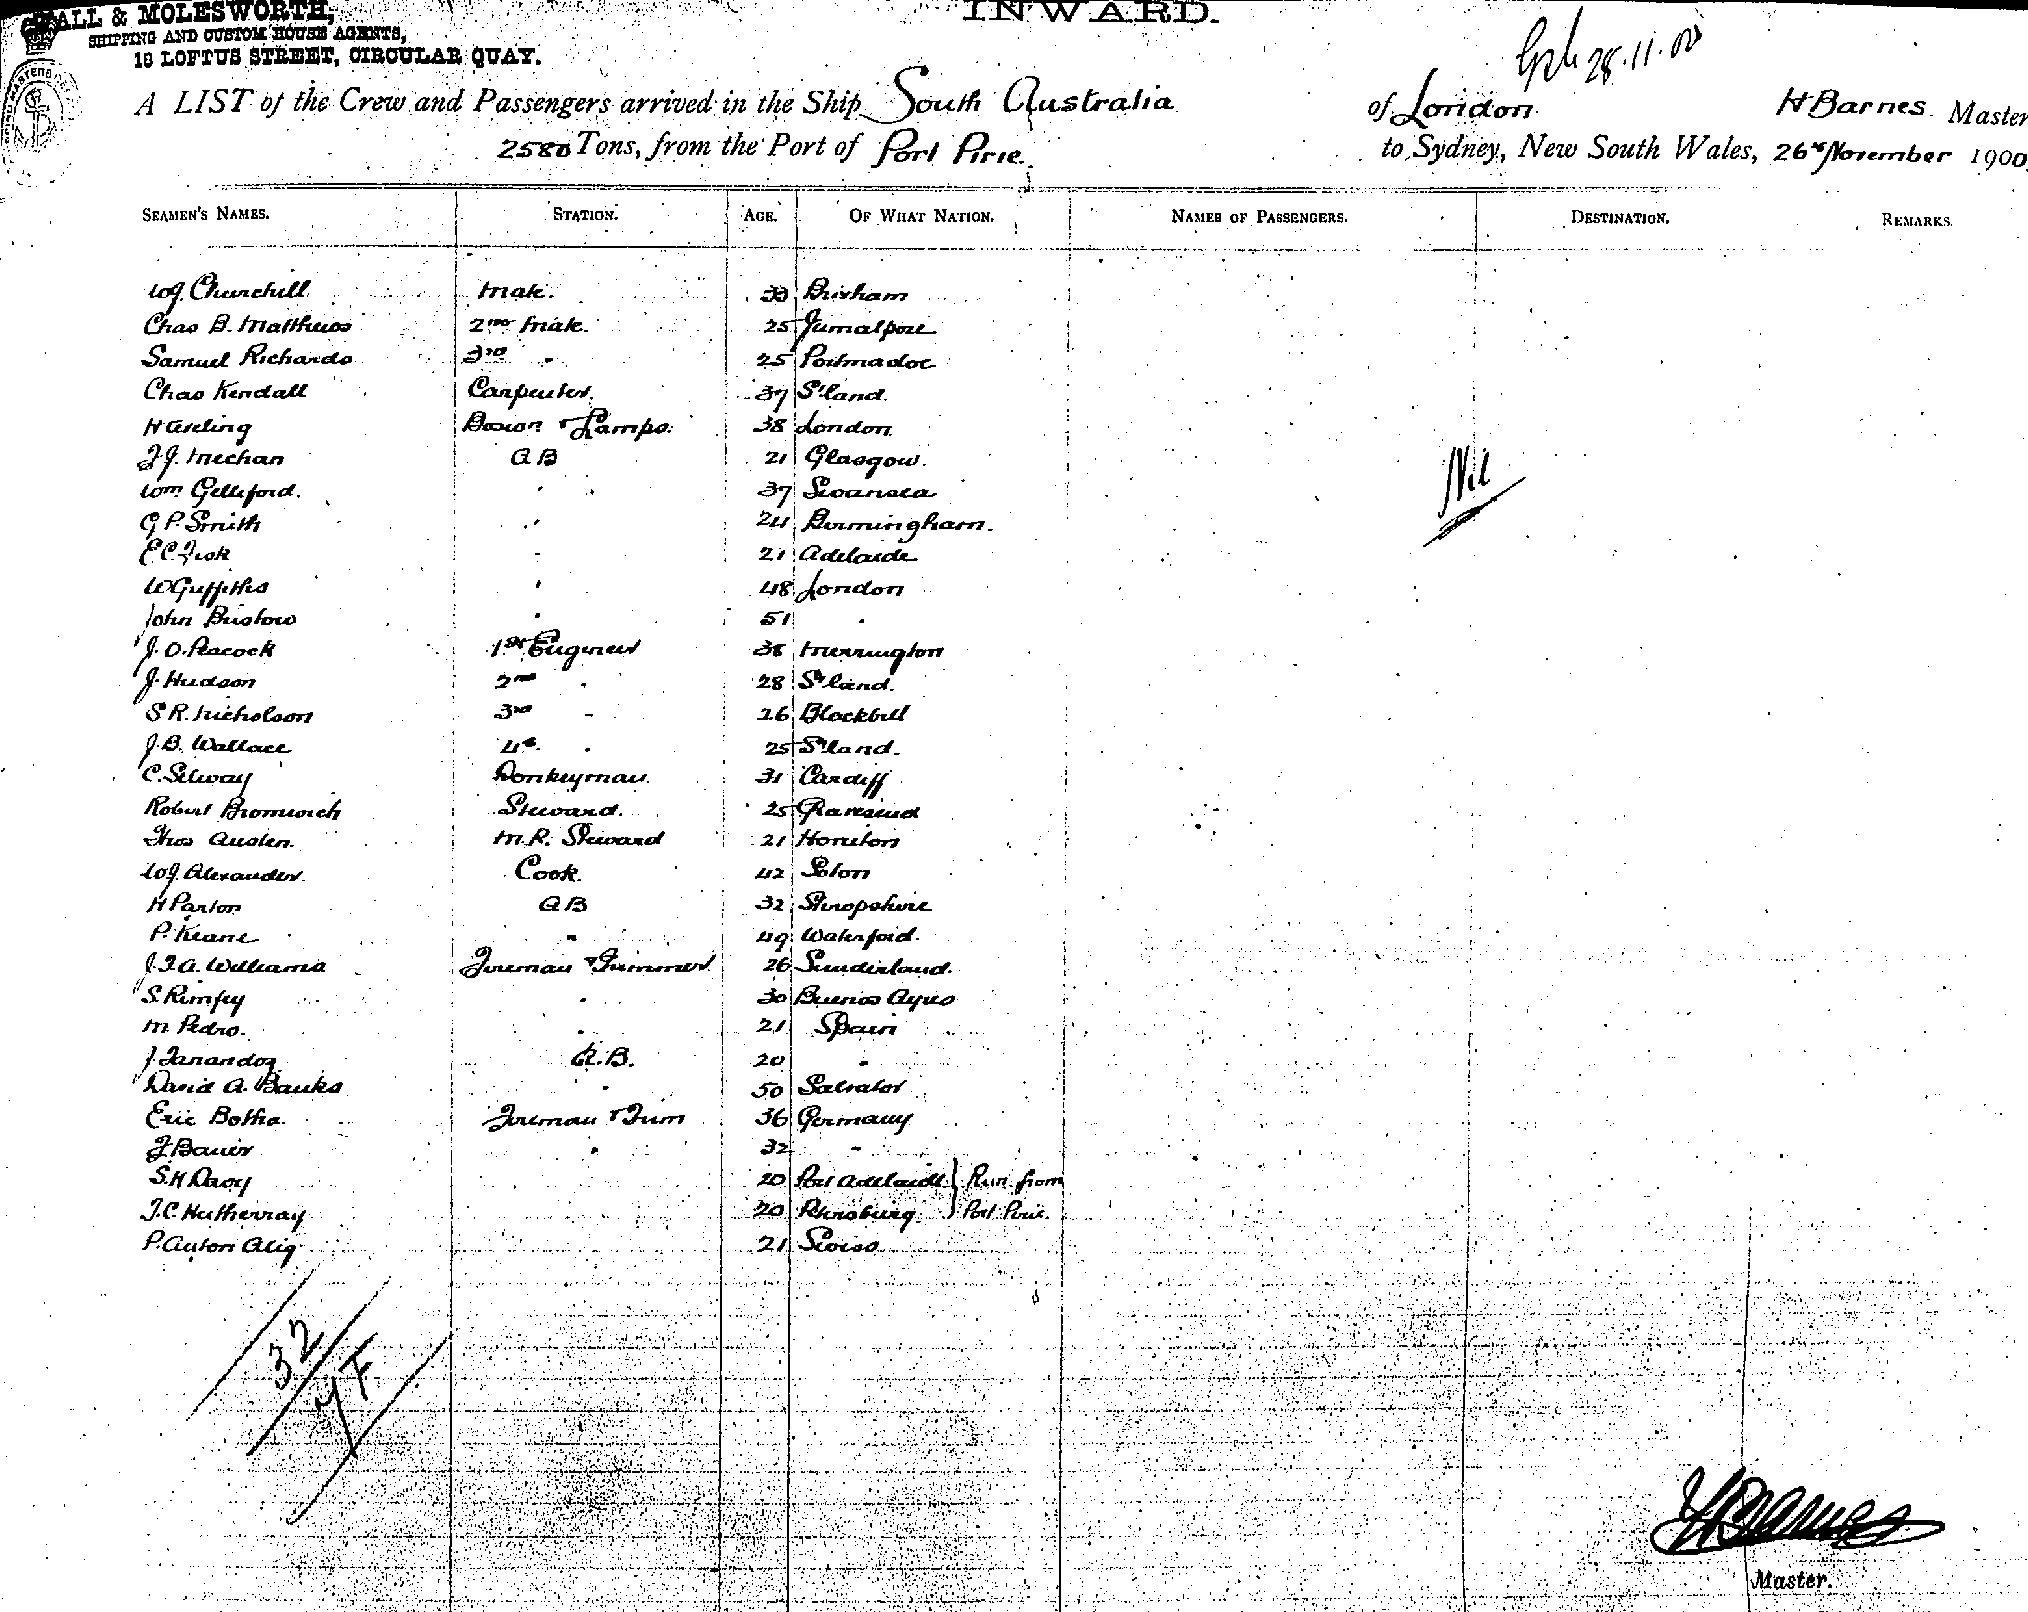 ALL & MOLESWORTH,
SHIPPING AND CUSTOM HOUSE AGENTS,
18 LOFTUS STREET, CIRCULAR QUAY.
INWARD.
28.11.00
A LIST of the Crew and Passengers arrived in the Ship South Australia of London H Barnes Master
2580 Tons, from the Port of Port Pirie. to Sydney, New South Wales, 26th November 1900
SEAMEN'S NAMES. STATION. AGE. OF WHAT NATION. NAMES OF PASSENGERS. DESTINATION. REMARKS.
WJ. Churchill Mate. 33 Brixham
Chas B. Matthews 2nd Mate. 25 Jumalpore
Samuel Richards 3rd " 25 Portmadoc
Chas Kendall Carpenter. 37 S'land
H Boson & Lamps. 38 London
J.J. Mechan AB 21 Glasgow.
Wm Gelliford. " 37 Swansea
G P. Smith " 24 Birmingham.
E C. Fisk " 21 Adelaide
W Griffiths " 48 London
John Bristow " 51 "
J. O. Peacock 1st Engineer 38 Merrington
J. Hudson 2nd " 28 S'land.
S R. Nicholson 3rd " 26 Blackhill
J. B. Wallace 4th " 25 S'land.
C. Selway Donkeyman. 31 Cardiff
Robert Bromwich Steward. 25 Gravesend
Thos Austen. M.R. Steward 21 Honiton
WJ. Alexander. Cook. 42 Soton
H Parton AB 32 Shropshire
P. Keane " 49 Waterford.
J. F. A. Williams Fireman & Trimmer 26 Sunderland.
S. Rimfey " 30 Buenos Ayres
M Pedro. " 21 Spain
J. Fanandoz A.B. 20 "
David A. Banks " 50 Salvator
Eric Botha Fireman & Trim 36 Germany
F Bauer " 32 "
S. H Davy 20 Port Adelaide } Run from
J. C. Hutherray 20 Petersburg } Port Pirie.
P. Anton Alig 21 Swiss
Nil
32
H Barnes
Master.